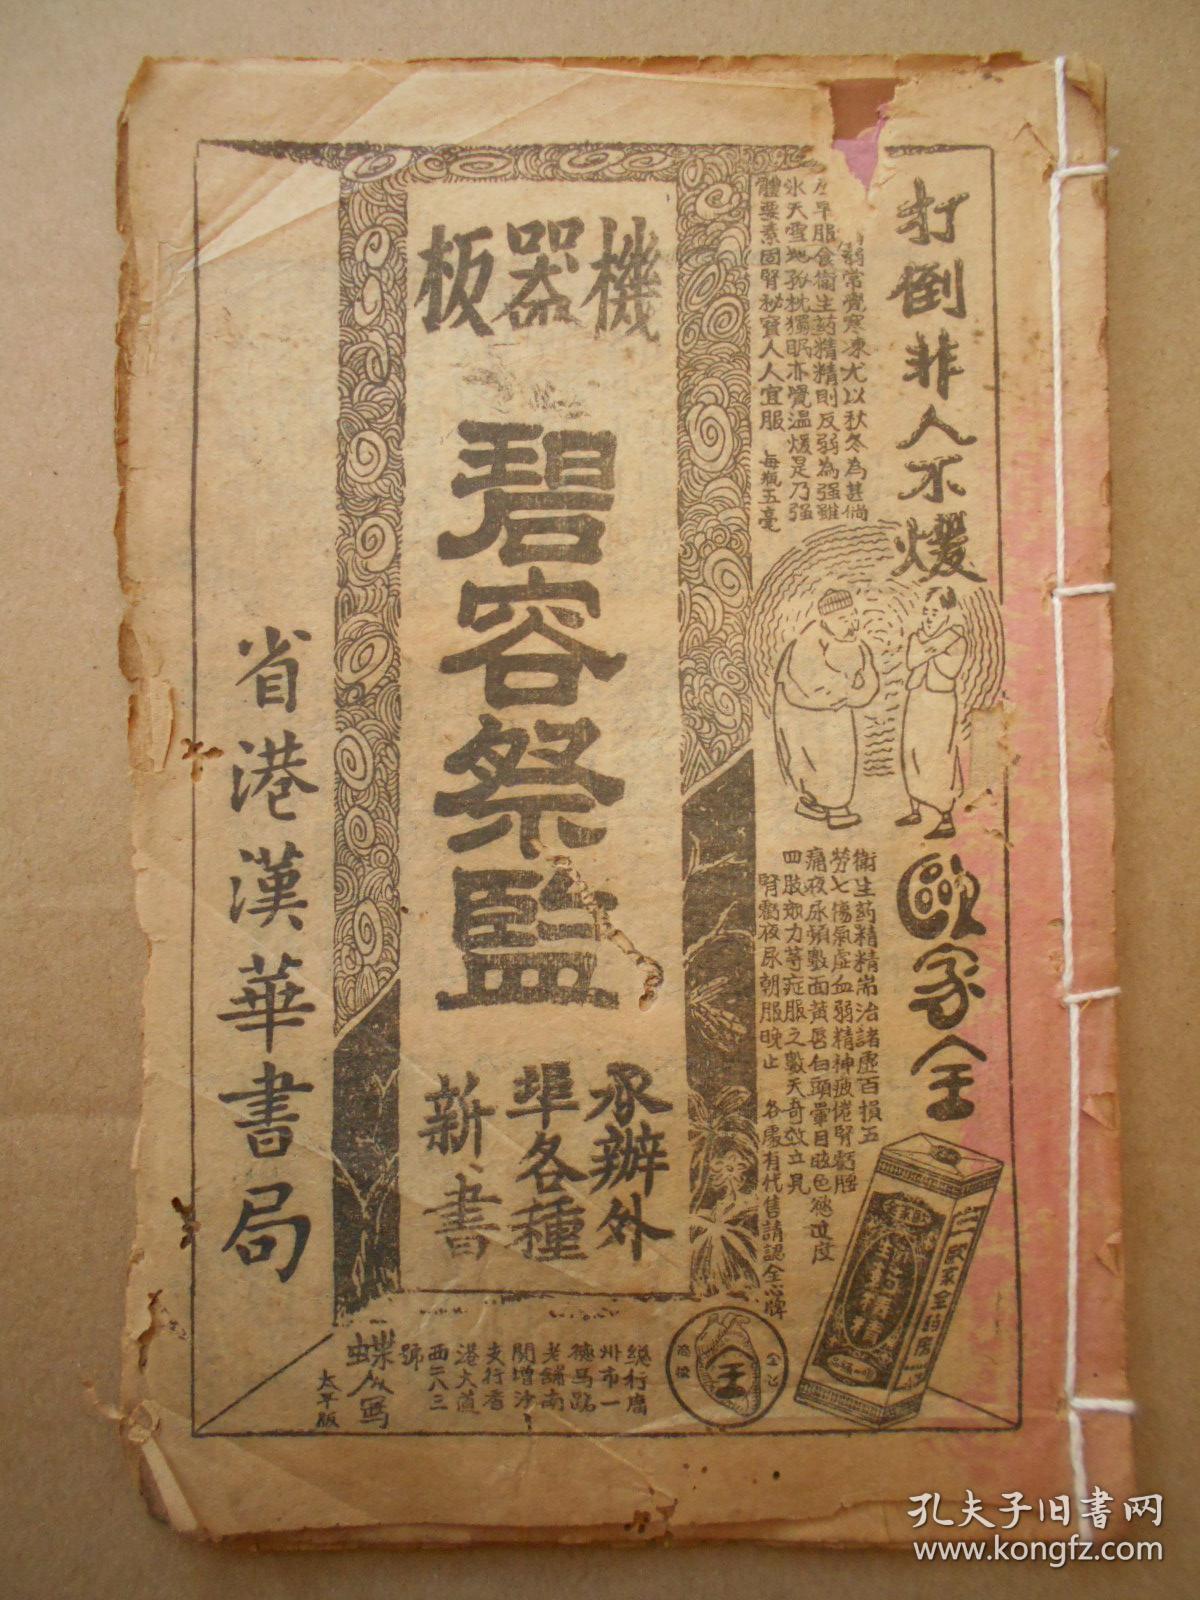 打倒非人不煖
弱常覺寒凍尤以秋冬為甚倘
早服食衛生葯精精則反弱為强雖
氷天雪地孤枕獨眠亦覺温煖是乃强
體要素固腎秘寶人人宜服　每瓶五毫
歐家全
衛生葯精精耑治諸虛百損五
勞七傷氣虛血弱精神疲倦腎虧腰
痛夜尿頻數面黄唇白頭暈目眩色慾过度
四肢力等症服之數天奇效立見
腎虧夜尿朝服晚止　各處有代售請認全心牌
機器板
碧容祭監
承辦外
埠各種
新書
省港漢華書局
總行廣
州市一
德馬路
老舖南
関增沙
支行香
港大道
西二八三
號
蝶人寫
太平版
全心
商標
全
歐家全葯房
孔夫子旧书网
www.kongfz.com